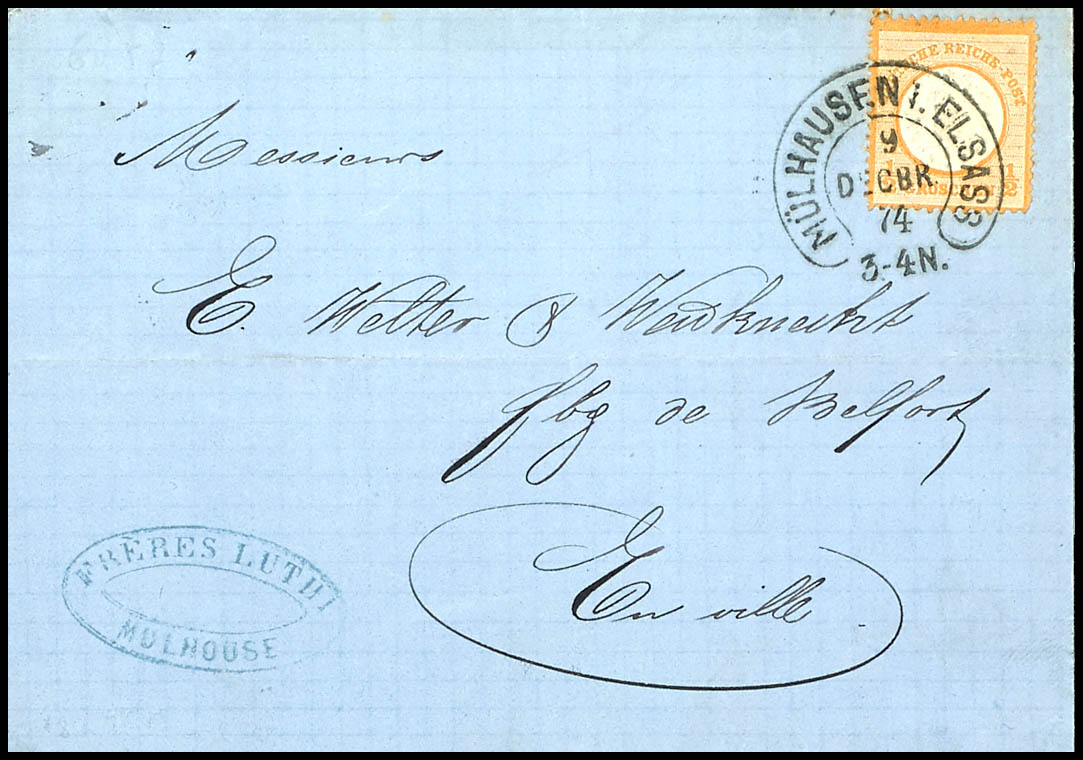 DEUTSCHE REICHS-POST
1/2 1/2
GROSCHEN
MÜLHAUSEN i. ELSASS
9
DECBR.
74
3-4N.
Messieurs
E. Welter & Weidknecht
fbg de Belfort
En ville
FRÈRES LUTHI
MULHOUSE